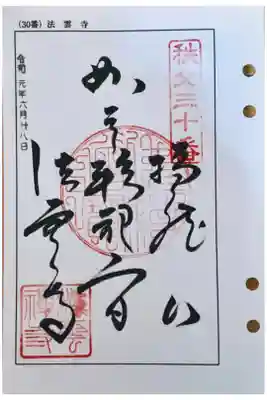 (30番) 法雲寺
秩父三十番
瑞龍山
如意輪観音
法雲寺
令和元年六月廿八日